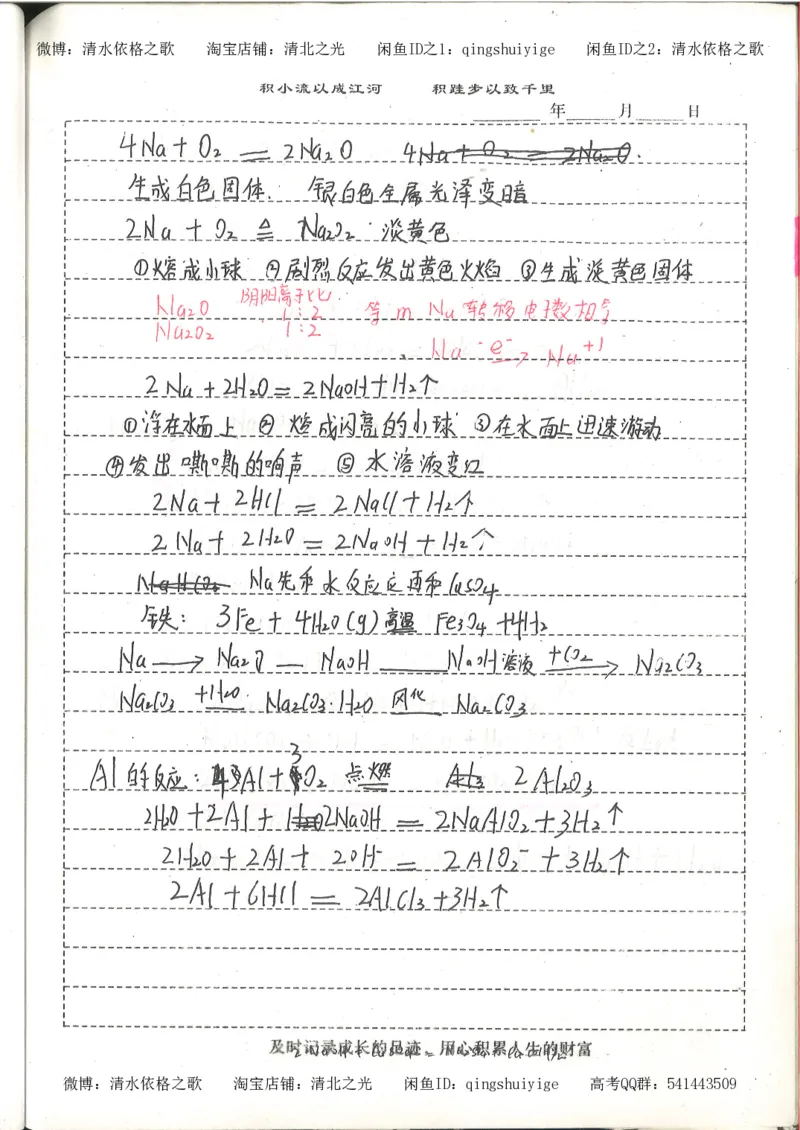 微博：清水依格之歌 淘宝店铺：清北之光 闲鱼ID之1：qingshuiyige 闲鱼ID之2：清水依格之歌
积小流以成江河 积跬步以致千里
年 月 日
4Na + O₂ = 2Na₂O 4Na + O₂ = 2Na₂O.
生成白色固体. 银白色金属光泽变暗
2Na + O₂ ≜ Na₂O₂ 淡黄色
①熔成小球 ②剧烈反应发出黄色火焰 ③生成淡黄色固体
阴阳离子比
Na₂O 1:2 等m Na 转移电子数相等
Na₂O₂ 1:2
Na -e⁻→ Na⁺¹
2Na + 2H₂O = 2NaOH + H₂↑
①浮在水面上 ② 熔成闪亮的小球 ③在水面上迅速游动
④发出嘶嘶的响声 ⑤水溶液变红
2Na + 2HCl = 2NaCl + H₂↑
2Na + 2H₂O = 2NaOH + H₂↑
Na先和水反应应再和CuSO₄
铁： 3Fe + 4H₂O(g) 高温 Fe₃O₄ + 4H₂
Na → Na₂O — NaOH — NaOH溶液 +CO₂→ Na₂CO₃
Na₂CO₃ +H₂O Na₂CO₃·H₂O 风化 Na₂CO₃
Al的反应： 4Al + 3O₂ 点燃 2Al₂O₃
2H₂O + 2Al + 2NaOH = 2NaAlO₂ + 3H₂↑
2H₂O + 2Al + 2OH⁻ = 2AlO₂⁻ + 3H₂↑
2Al + 6HCl = 2AlCl₃ + 3H₂↑
及时记录成长的足迹，用心积累人生的财富
微博：清水依格之歌 淘宝店铺：清北之光 闲鱼ID：qingshuiyige 高考QQ群：541443509